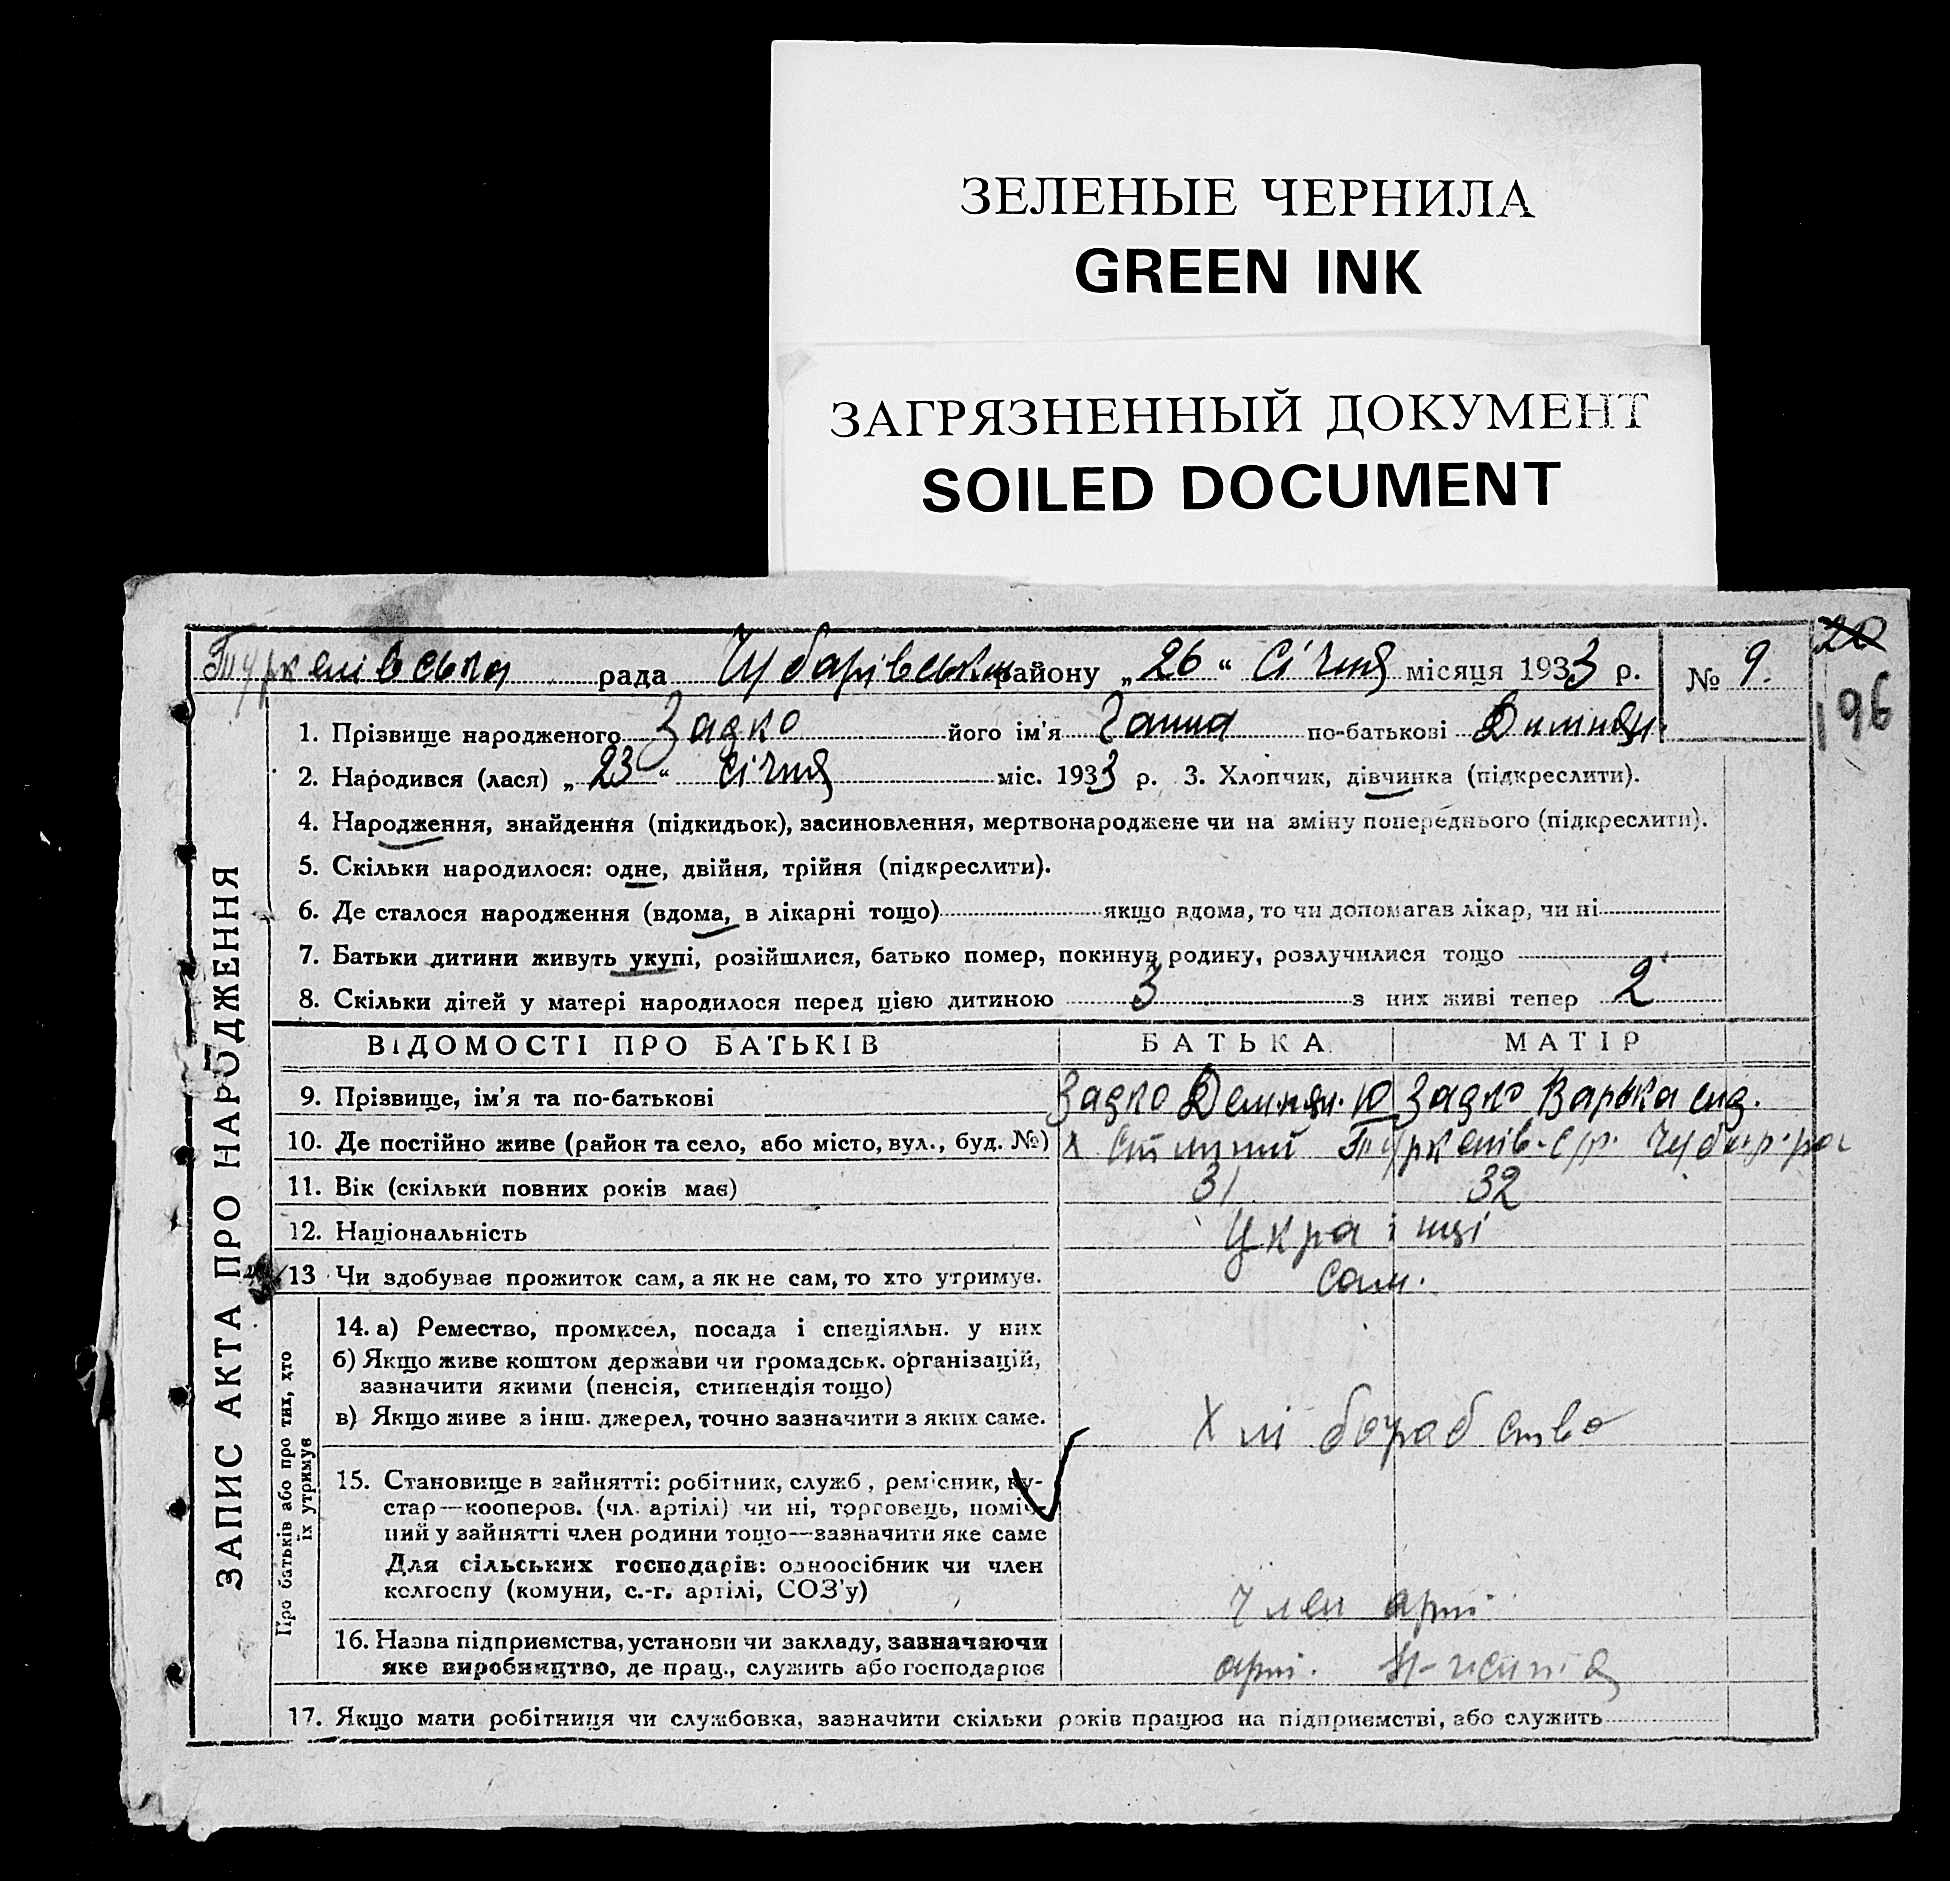 ЗЕЛЕНЫЕ ЧЕРНИЛА
GREEN INK
ЗАГРЯЗНЕННЫЙ ДОКУМЕНТ
SOILED DOCUMENT
20
196
Туркенівська рада Чубарівськ району „26“ Січня місяця 1933 р. № 9.
ЗАПИС АКТА ПРО НАРОДЖЕННЯ
1. Прізвище народженого Задко його ім'я Ганна по-батькові
2. Народився (лася) „23“ січня міс. 1933 р. 3. Хлопчик, дівчинка (підкреслити).
4. Народження, знайдення (підкидьок), засиновлення, мертвонароджене чи на зміну попереднього (підкреслити).
5. Скільки народилося: одне, двійня, трійня (підкреслити).
6. Де сталося народження (вдома, в лікарні тощо) якщо вдома, то чи допомагав лікар, чи ні
7. Батьки дитини живуть укупі, розійшлися, батько помер, покинув родину, розлучилися тощо
8. Скільки дітей у матері народилося перед цією дитиною 3 з них живі тепер 2
ВІДОМОСТІ ПРО БАТЬКІВ БАТЬКА МАТІР
9. Прізвище, ім'я та по-батькові Задко Демян. Ю Задко Варька
10. Де постійно живе (район та село, або місто, вул., буд. №) х Туркенів. с/р. Чубар. ра
11. Вік (скільки повних років має) 31 32
12. Національність Українці
13 Чи здобуває прожиток сам, а як не сам, то хто утримує. Сам.
Про батьків або про тих, хто їх утримує
14. а) Ремество, промисел, посада і спеціяльн. у них
б) Якщо живе коштом держави чи громадськ. організацій,
зазначити якими (пенсія, стипендія тощо)
в) Якщо живе з інш. джерел, точно зазначити з яких саме.
Хліборобство
15. Становище в зайнятті: робітник, служб, ремісник, ку-
стар—кооперов. (чл. артілі) чи ні, торговець, поміч-
ний у зайнятті член родини тощо—зазначити яке саме
Для сільських господарів: одноосібник чи член
колгоспу (комуни, с.-г. артілі, СОЗ'у)
Член арт.
16. Назва підприємства, установи чи закладу, зазначаючи
яке виробництво, де прац., служить або господарює
арт.
17. Якщо мати робітниця чи службовка, зазначити скільки років працює на підприємстві, або служить